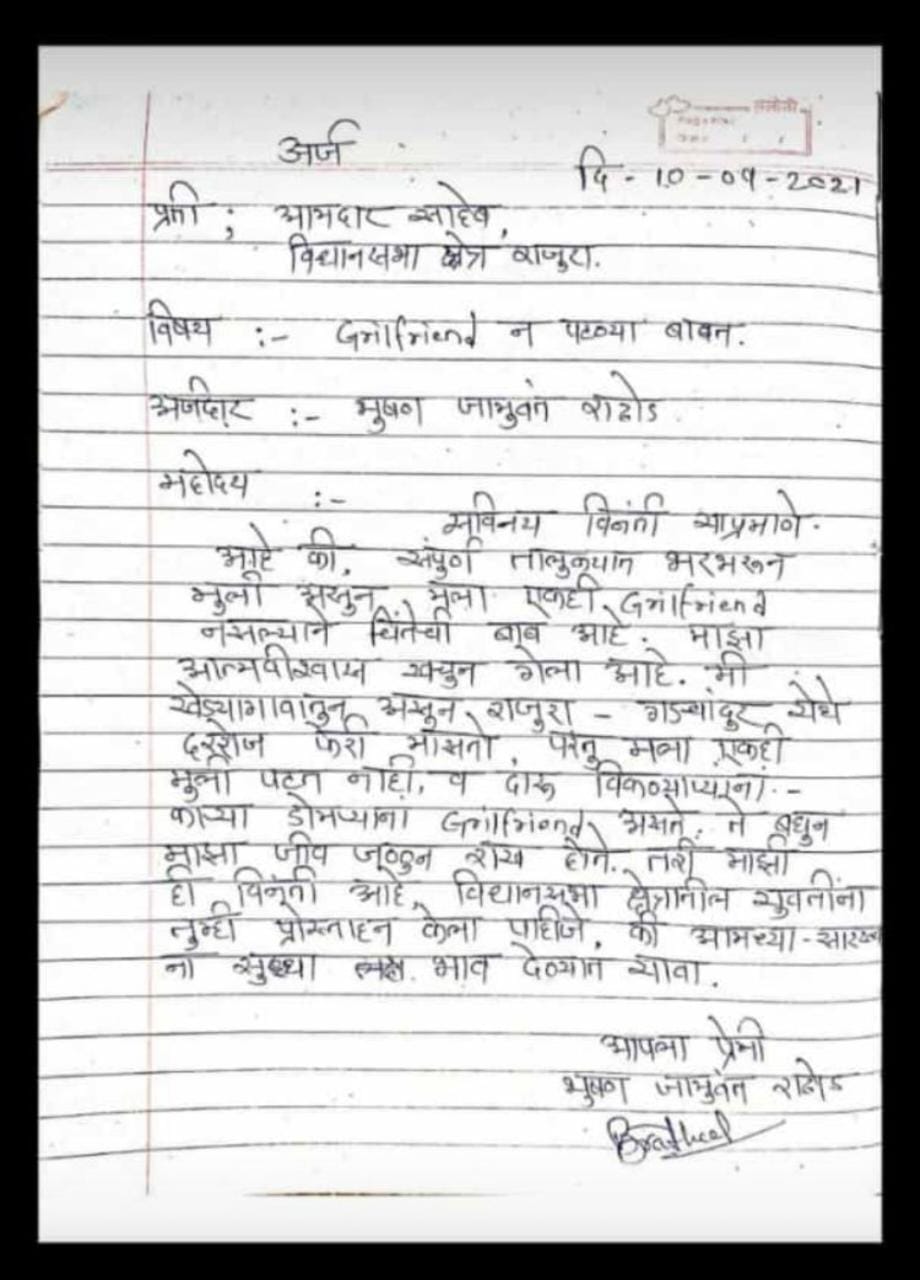 अर्ज
दि - 10-09-2021
प्रती ; आमदार साहेब,
विधानसभा क्षेत्र राजुरा.
विषय :- Grilfriend न पटण्या बाबत.
अर्जदार :- भुषण जामुवंत राठोड
महोदय :-
सविनय विनंती याप्रमाणे.
आहे की, संपुर्ण तालुक्यात भरभरून
मुली असुन, मला एकही Grilfriend
नसल्याने चिंतेची बाब आहे. माझा
आत्मवीश्वास खचुन गेला आहे. मी
खेड्यागावातुन असुन, राजुरा - गडचांदुर येथे
दररोज फेरी मारतो, परंतु मला एकही
मुली पटत नाही, व दारू विकण्याप्यरना.-
काऱ्या डोमप्याना Grilfriend असते. ते बघुन
माझा जीव जळुन राख होते. तरी माझी
ही विनंती आहे, विधानसभा क्षेत्रातील युवतींना
तुम्ही प्रोत्साहन केला पाहीजे, की आमच्या-सारख्या
ना सुध्धा भाव देण्यात यावा.
आपला प्रेमी
भुषण जामुवंत राठोड